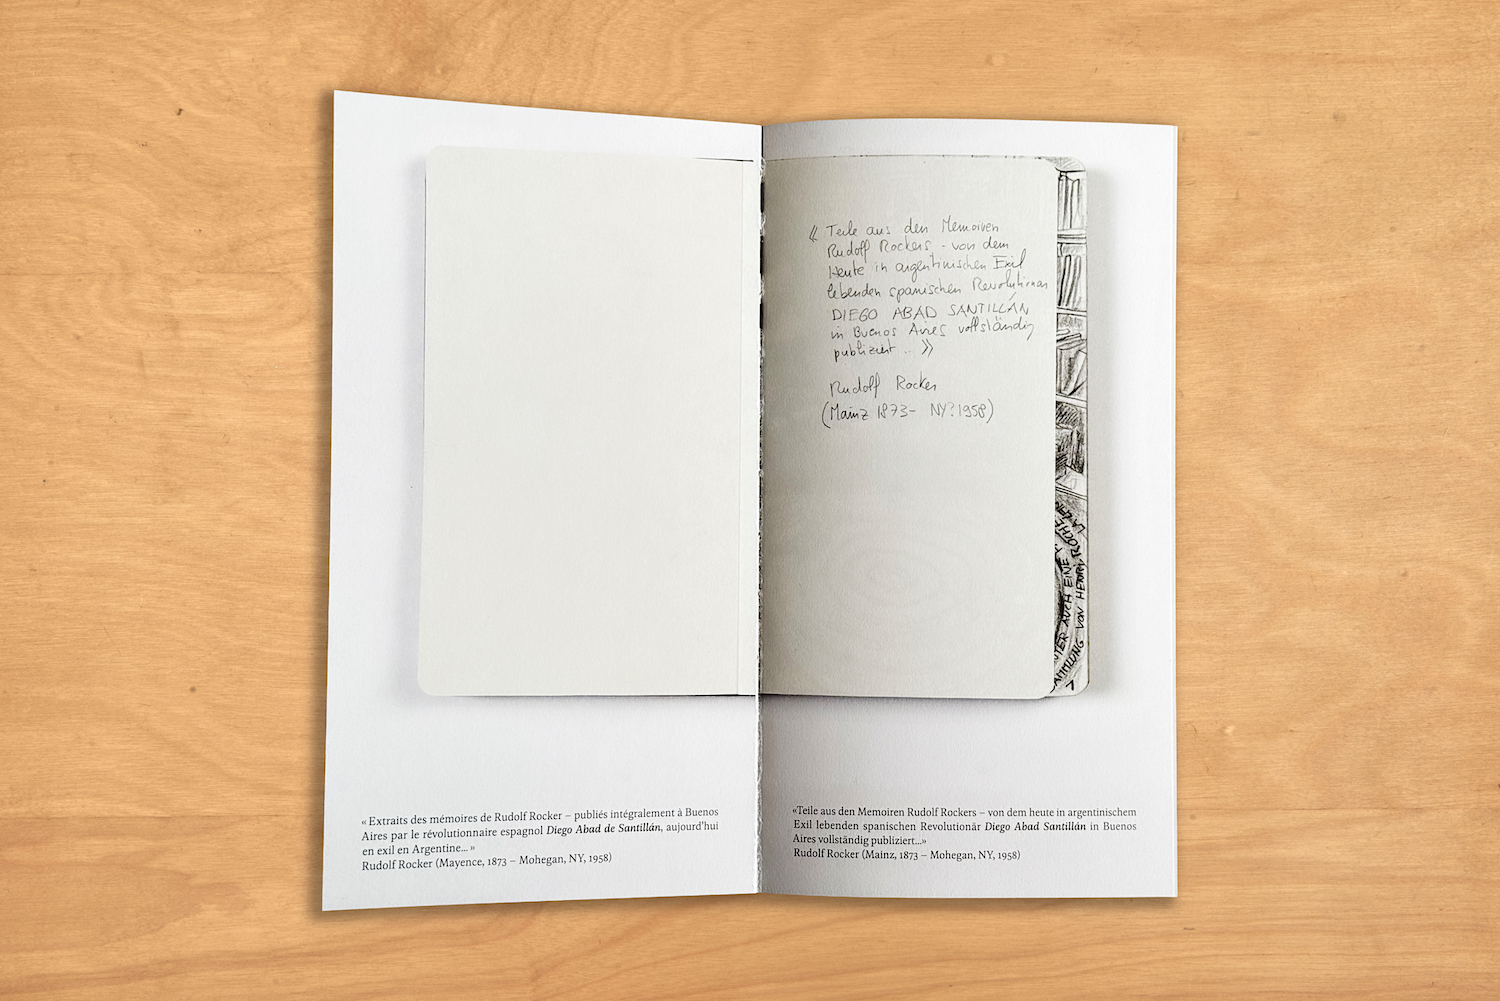 « Extraits des mémoires de Rudolf Rocker – publiés intégralement à Buenos
Aires par le révolutionnaire espagnol Diego Abad de Santillán, aujourd'hui
en exil en Argentine... »
Rudolf Rocker (Mayence, 1873 – Mohegan, NY, 1958)
« Teile aus den Memoiren
Rudolf Rockers - von dem
Heute in argentinischen Exil
lebenden spanischen Revolutionär
DIEGO ABAD SANTILLÁN
in Buenos Aires vollständig
publiziert ... »
Rudolf Rocker
(Mainz 1873 - NY? 1958)
AUCH EINE
VON HENRI ROCHE
«Teile aus den Memoiren Rudolf Rockers – von dem heute in argentinischem
Exil lebenden spanischen Revolutionär Diego Abad Santillán in Buenos
Aires vollständig publiziert...»
Rudolf Rocker (Mainz, 1873 – Mohegan, NY, 1958)